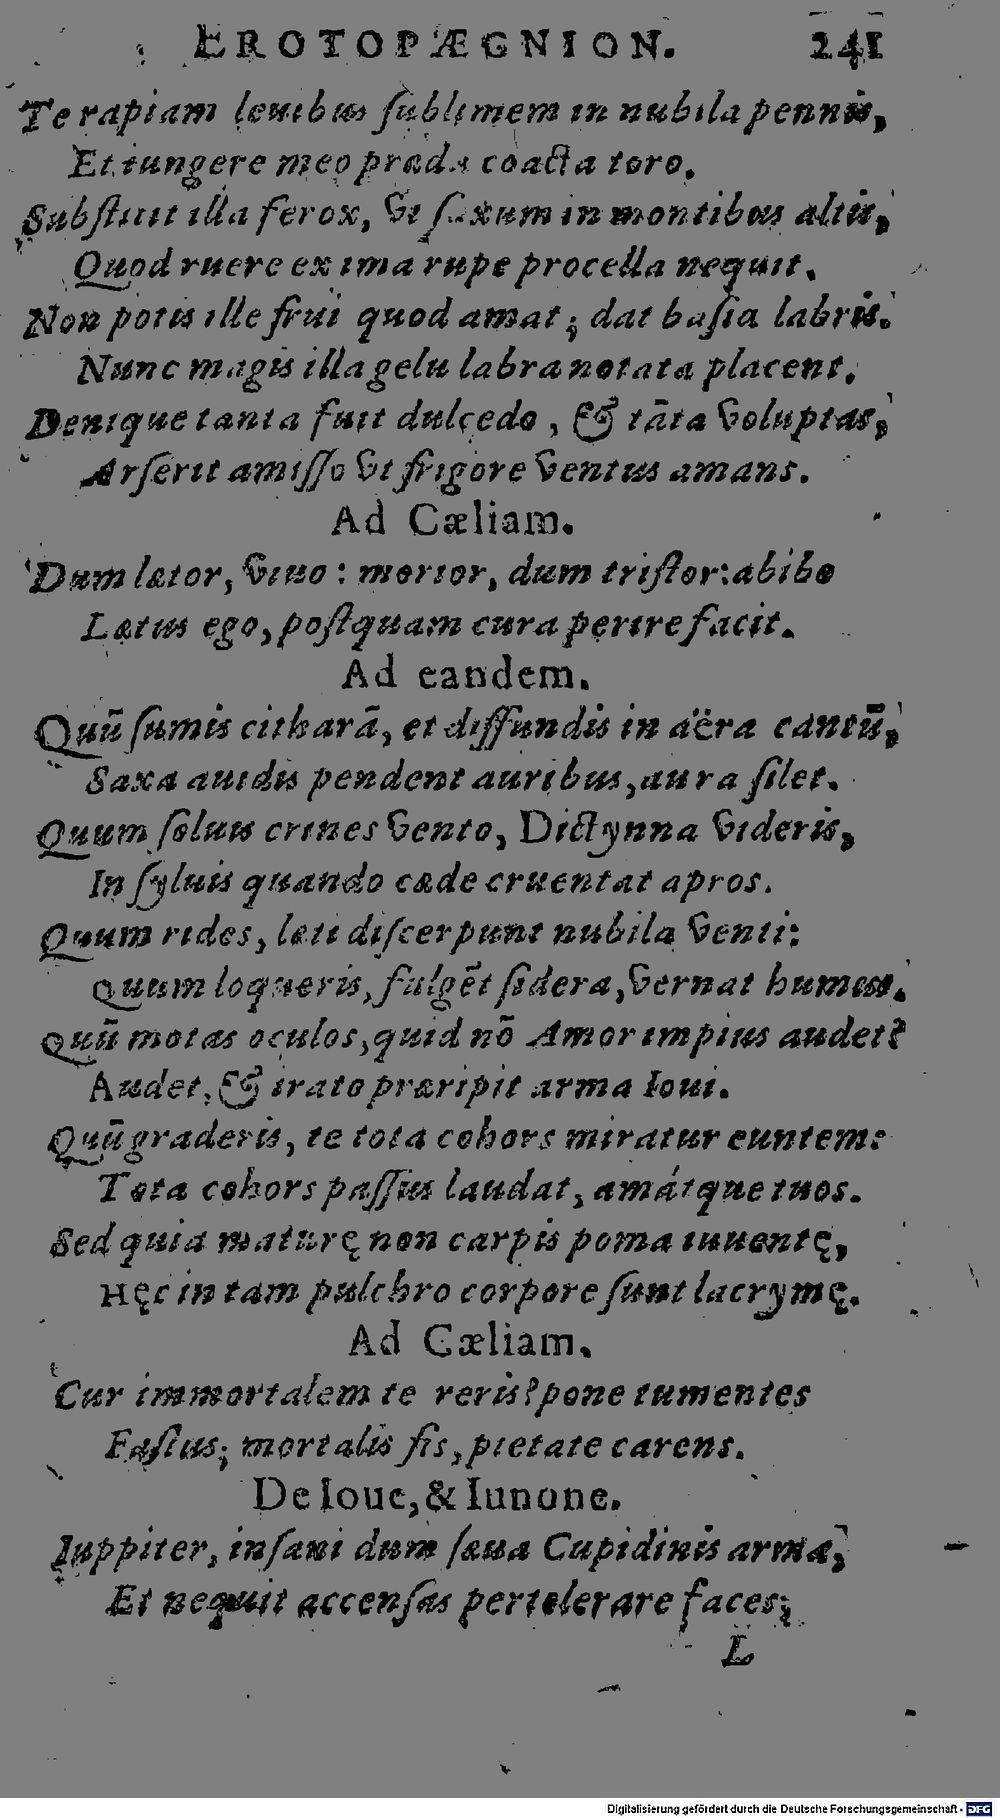 EROTOPÆGNION. 241
Te rapiam leuibus ſublimem in nubila pennis,
Et iungere meo præda coacta toro.
Subſtitit illa ferox, vt ſaxum in montibus altis,
Quod ruere ex ima rupe procella nequit.
Non potis ille frui quod amat; dat baſia labris.
Nunc magis illa gelu labra notata placent.
Denique tanta fuit dulcedo, & tāta voluptas,
Arſerit amiſſo vt frigore ventus amans.
Ad Cæliam.
Dum lætor, viuo: morior, dum triſtor: abibo
Lætus ego, poſtquam cura perire facit.
Ad eandem.
Quū ſumis citharā, et diffundis in aëra cantū,
Saxa auidis pendent auribus, aura ſilet.
Quum ſoluis crines vento, Dictynna videris,
In ſyluis quando cæde cruentat apros.
Quum rides, læti diſcerpunt nubila venti:
Quum loqueris, fulgēt ſidera, vernat humus.
Quū motas oculos, quid nō Amor impius audet?
Audet, & irato præripit arma Ioui.
Quū graderis, te tota cohors miratur euntem:
Tota cohors paſſus laudat, amátque tuos.
Sed quia maturę non carpis poma iuuentę,
Hęc in tam pulchro corpore ſunt lacrymę.
Ad Cæliam.
Cur immortalem te reris? pone tumentes
Faſtus; mortalis ſis, pietate carens.
De Ioue, & Iunone.
Iuppiter, inſani dum ſæua Cupidinis arma,
Et nequit accenſas pertolerare faces;
L
Digitalisierung gefördert durch die Deutsche Forschungsgemeinschaft - DFG